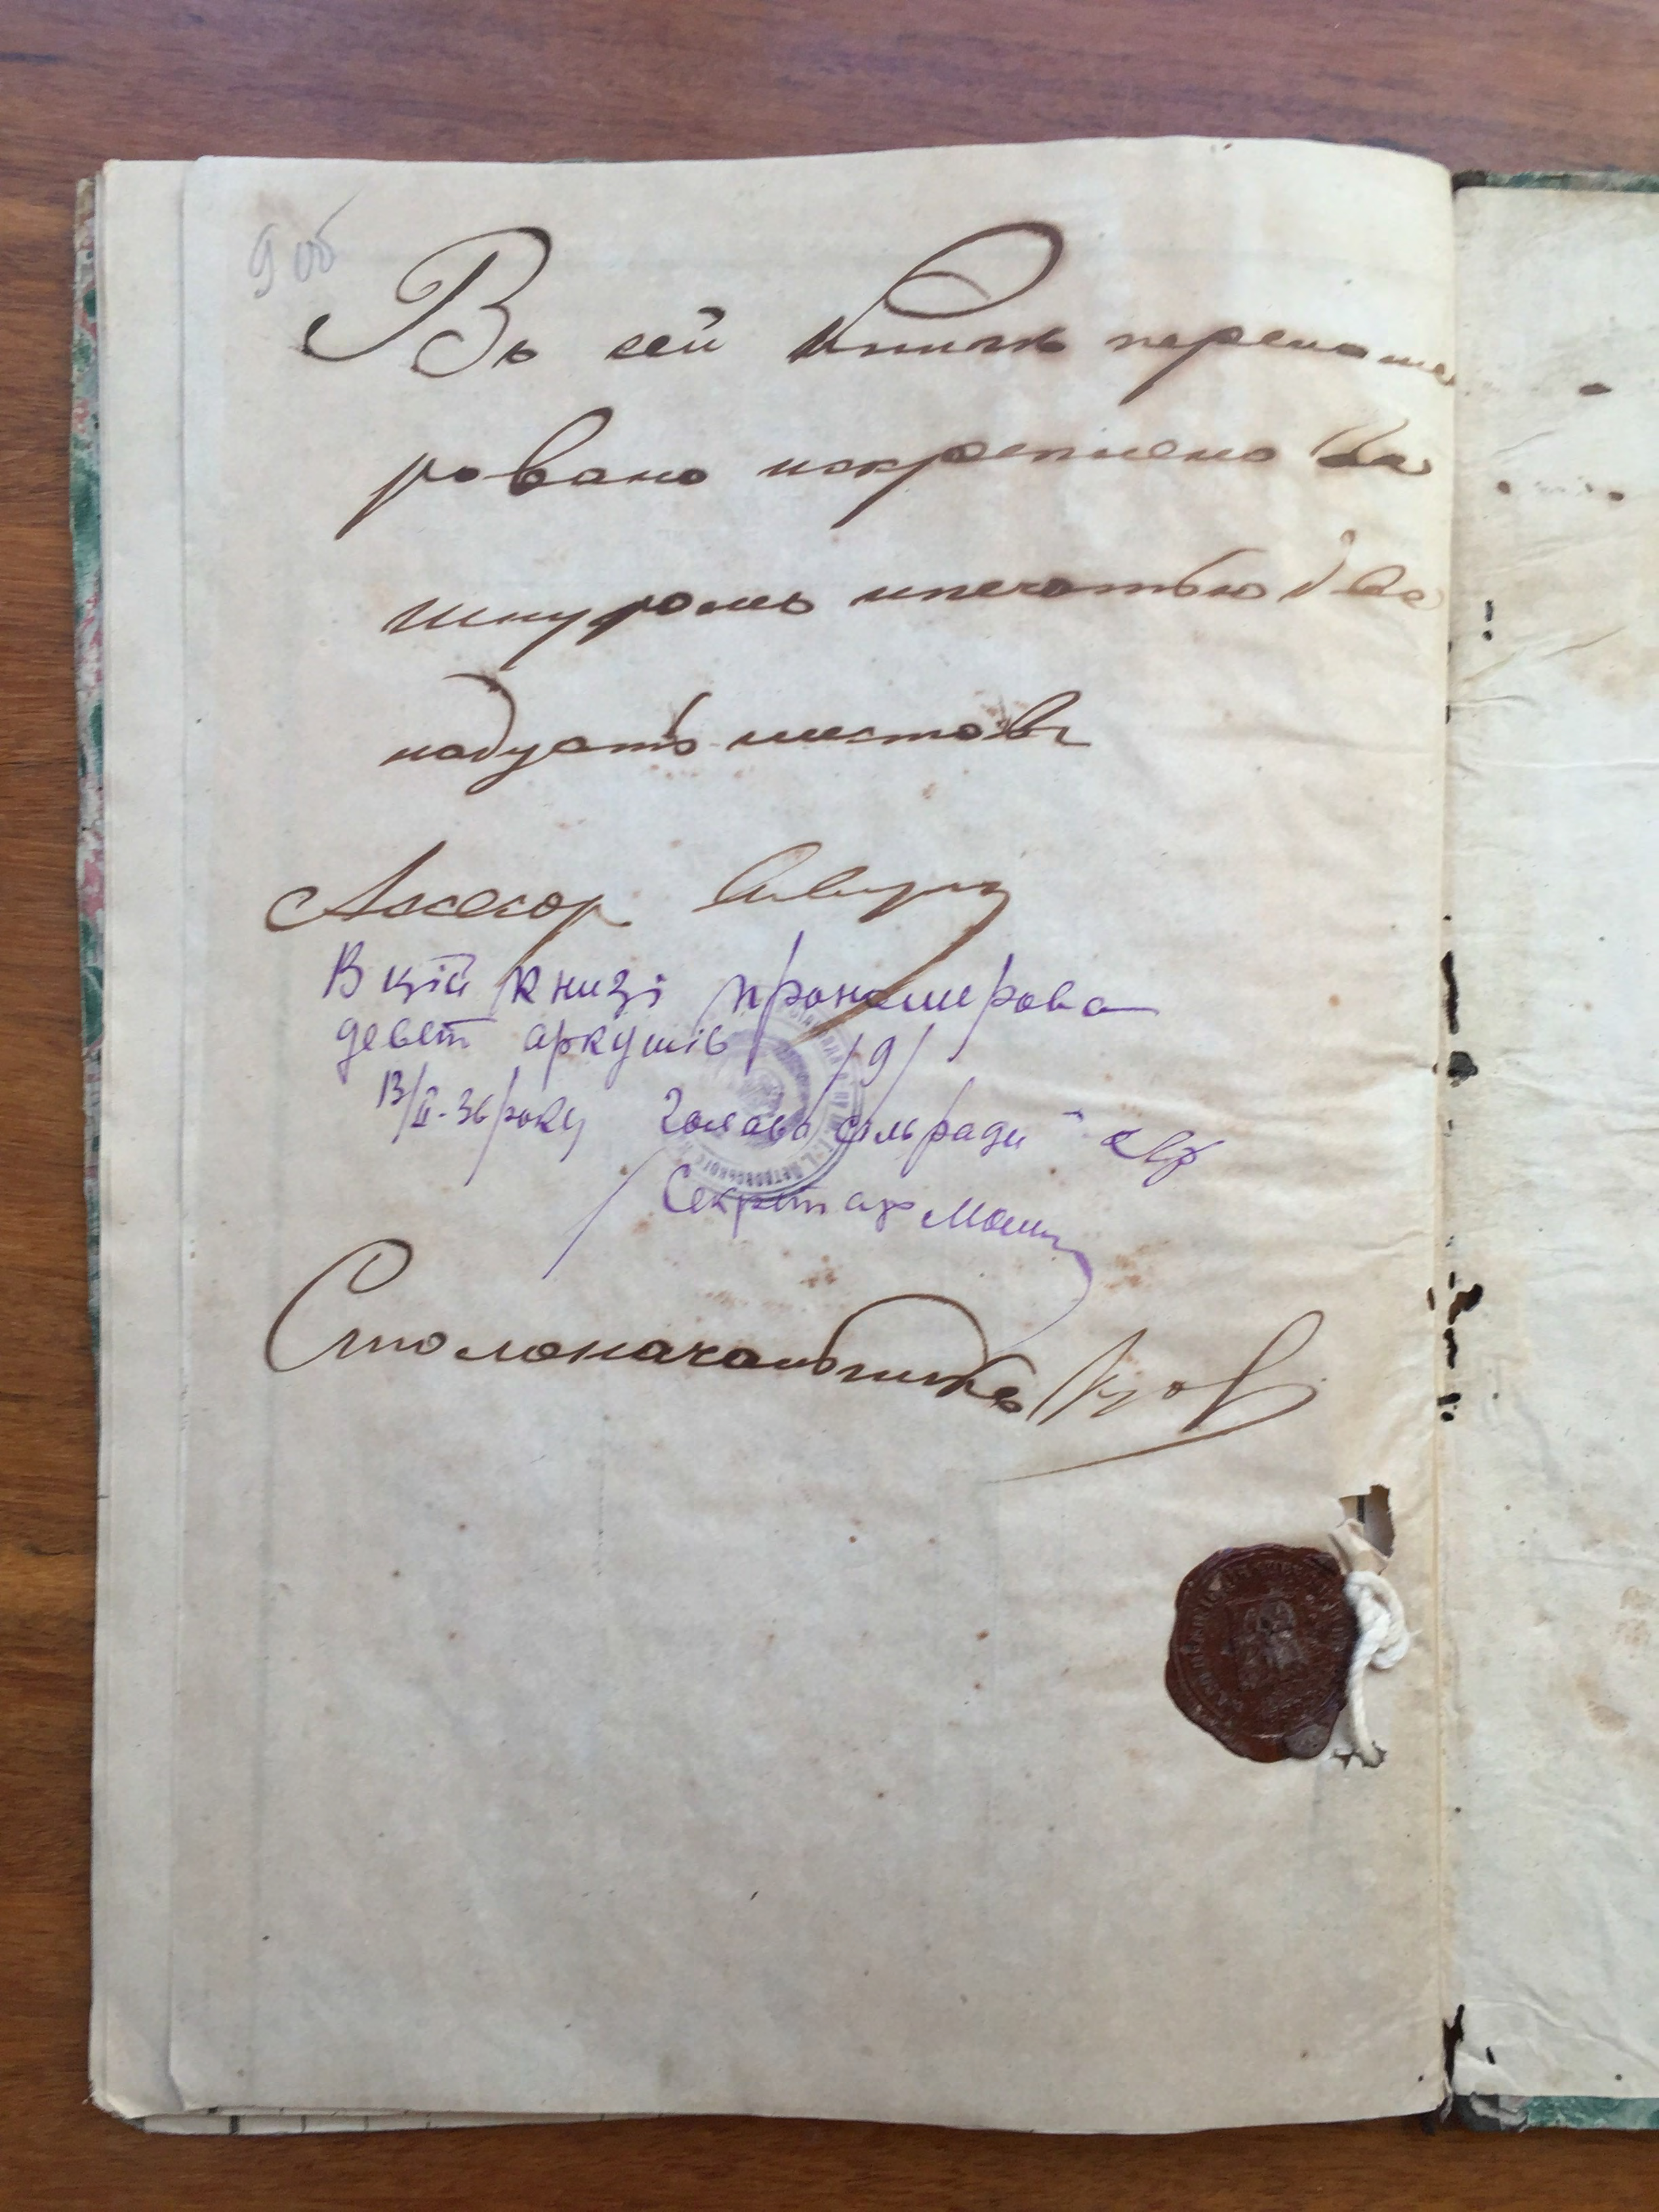 9 об
Въ сей книгѣ перенуме
ровано искреплено за
шнуромъ ипечатью два
надцать листовъ
Ассесор
В цій книзі пронумерова
девет аркушів /9/
13/II-36/року Голова сільради
Секретар
Столоначальникъ